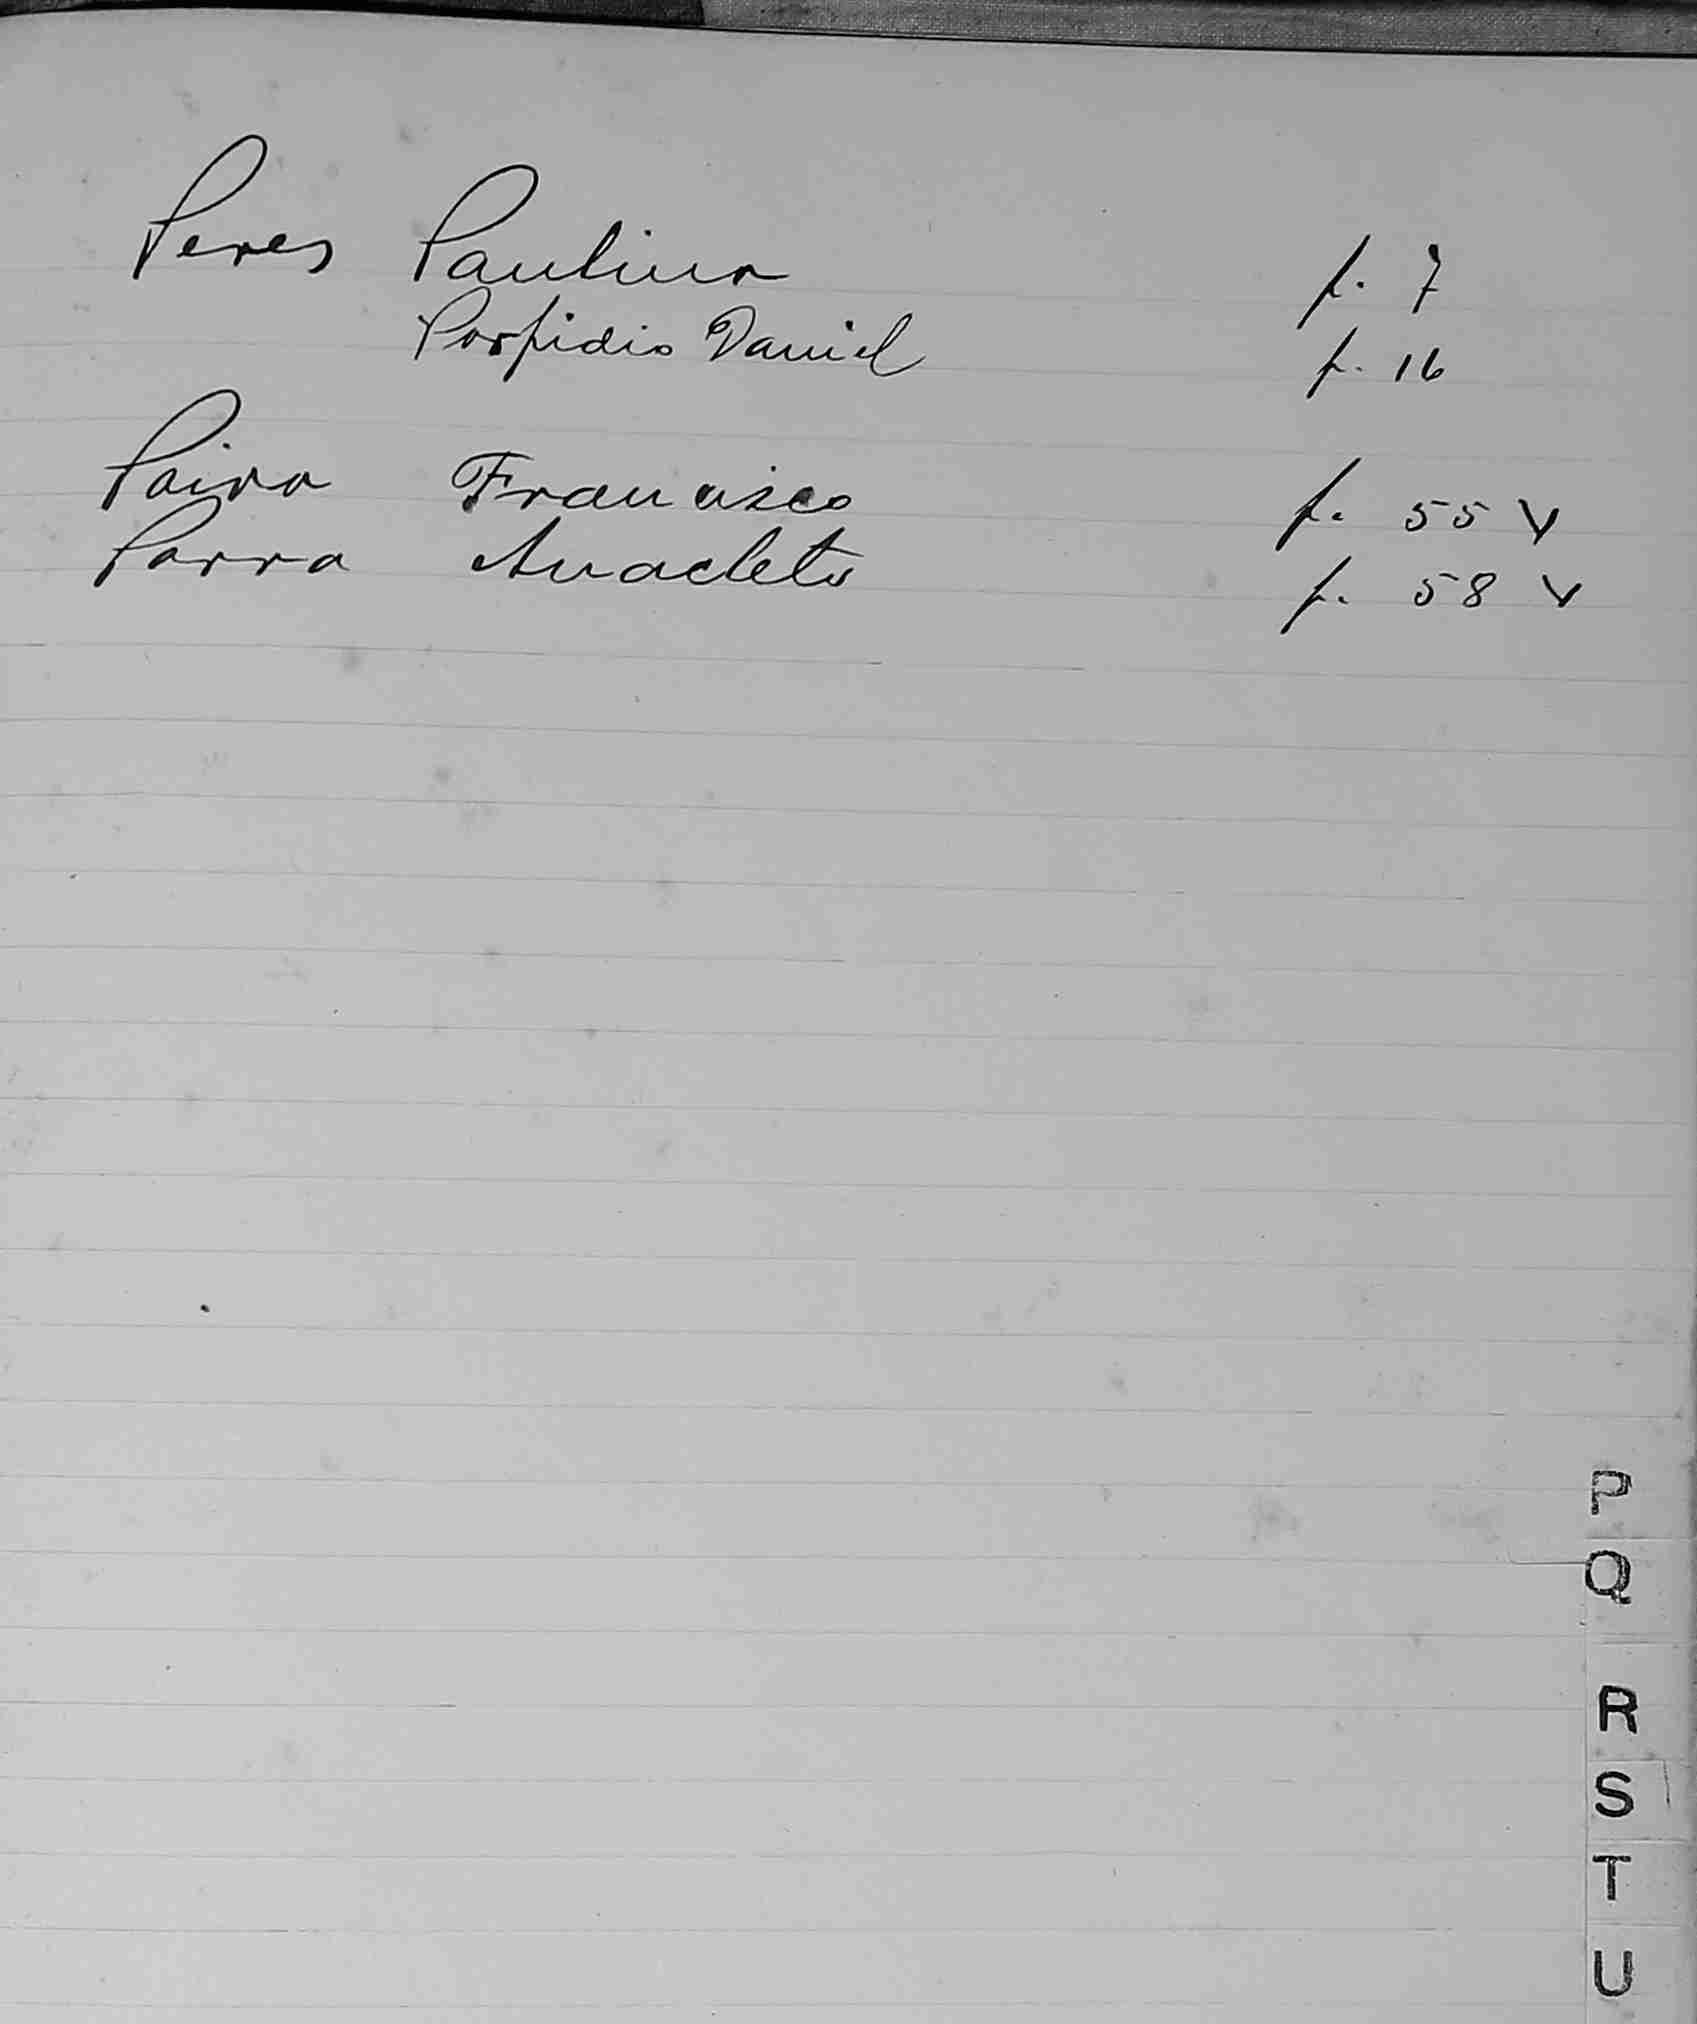 Peres Paulino f. 7
Porfidio Daniel f. 16
Paiva Francisco f. 55 v
Parra Anacleto f. 58 v
P
Q
R
S
T
U